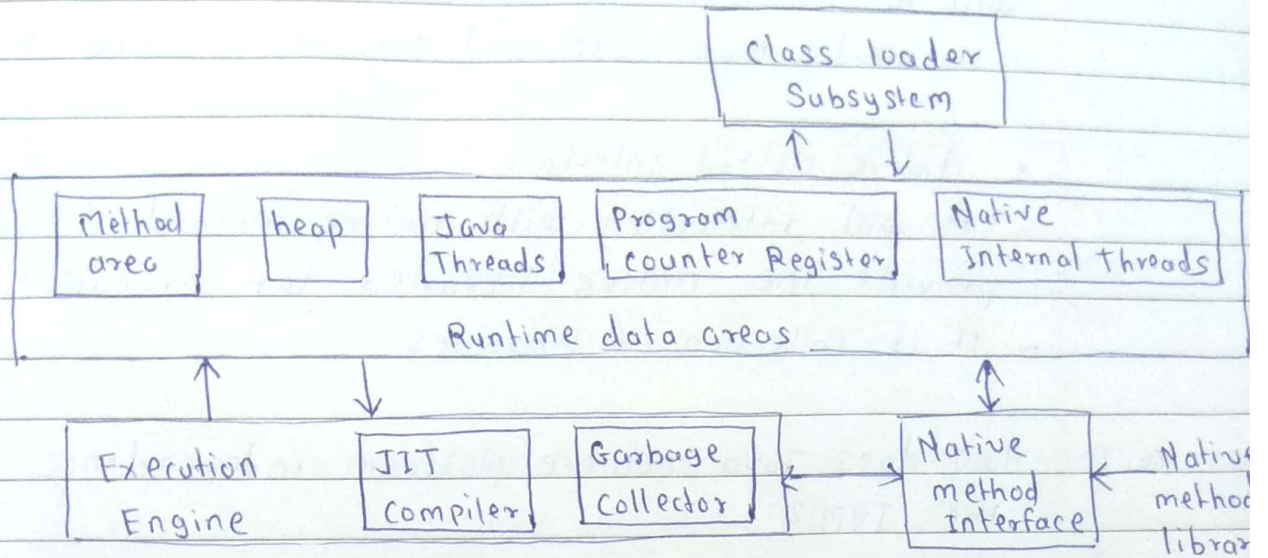 Class loader
Subsystem
Method
area
heap
Java
Threads
Program
Counter Register
Native
Internal Threads
Runtime data areas
Execution
Engine
JIT
Compiler
Garbage
Collector
Native
method
Interface
method